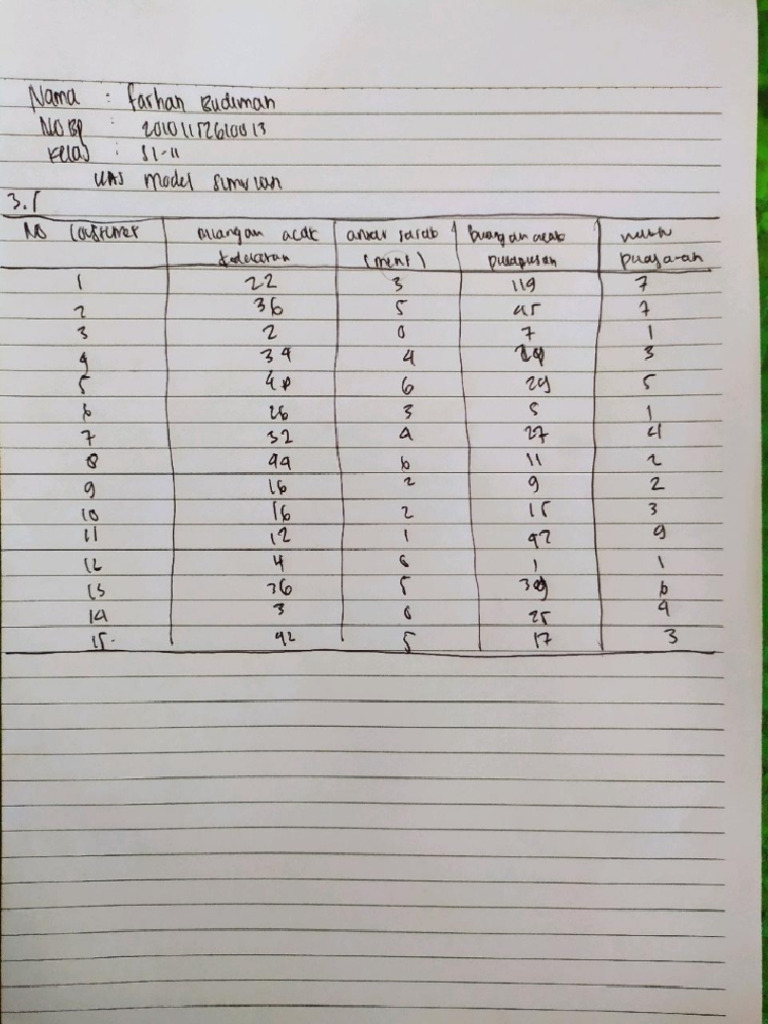 Nama : Farhan Budiman
NO BP : 20101152610013
Kelas : SI-11
UAS Model Simulasi
3.1
No Customer acak antar (menit) acak
1 22 3 119 7
2 36 5 45 7
3 2 0 7 1
4 34 4 3
5 6 29 5
6 26 3 5 1
7 32 4 27 4
8 44 6 11 2
9 16 2 9 2
10 16 2 15 3
11 12 1 47 9
12 4 0 1 1
13 36 5 6
14 3 0 25 4
15 42 5 17 3